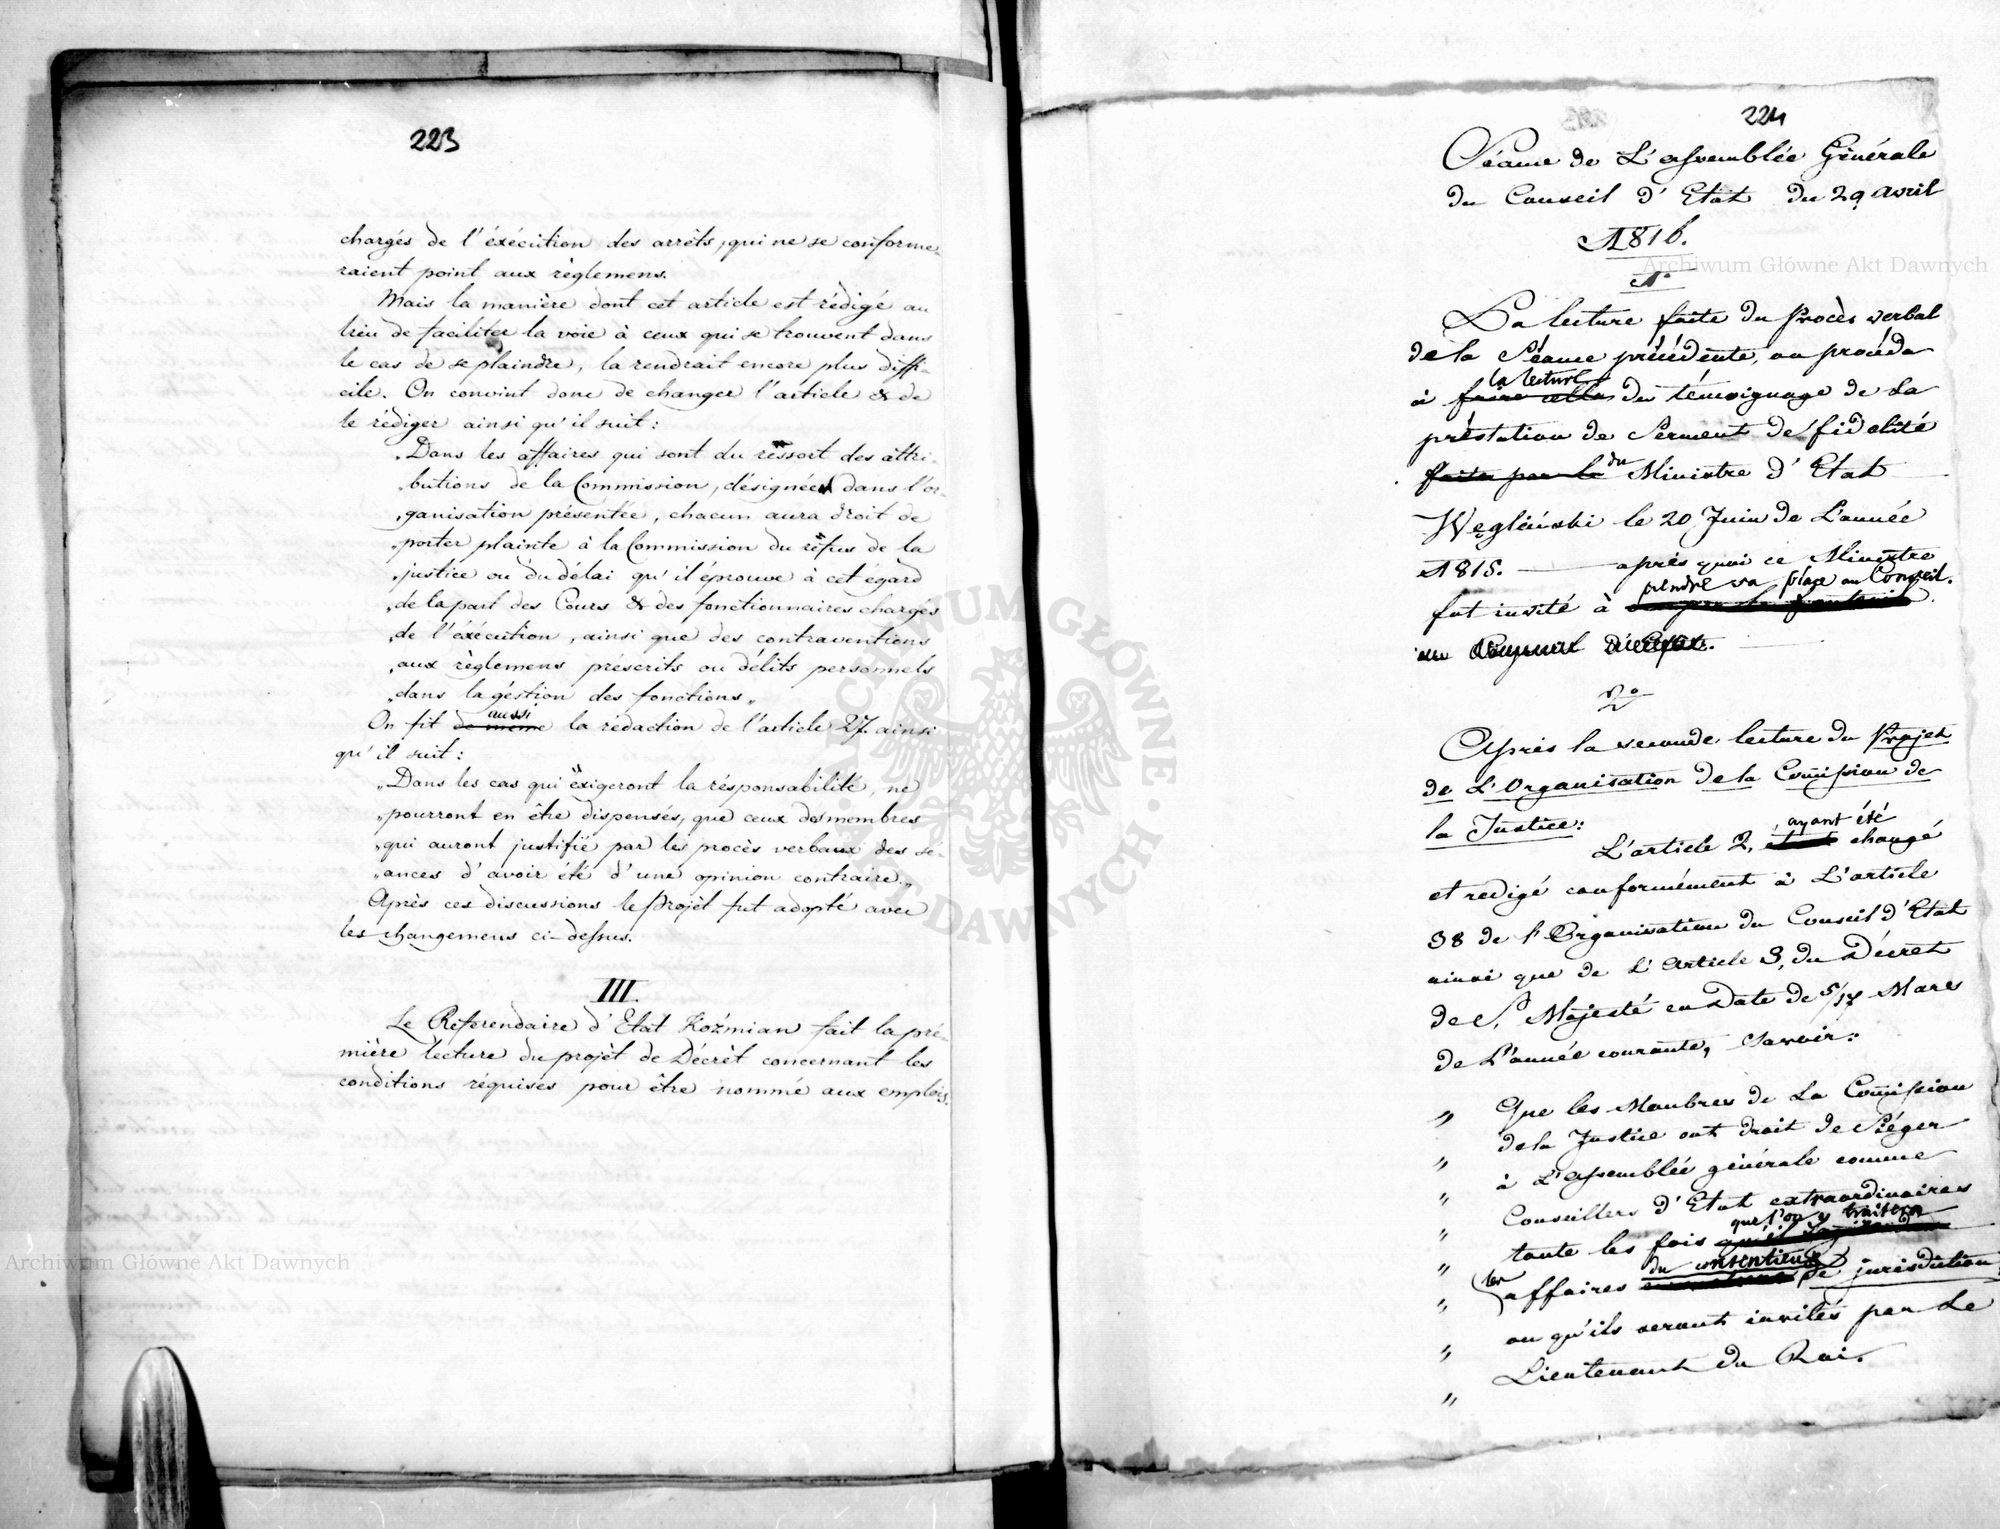 223
chargés de l'éxécution des arrêts, qui ne se conforme-
raient point aux règlemens.
Mais la manière dont cet article est rédigé au
lieu de faciliter la voie à ceux qui se trouvent dans
le cas de se plaindre, la rendrait encore plus diffi-
cile. On convint donc de changer l'article & de
le rédiger ainsi qu'il suit:
„Dans les affaires qui sont du ressort des attri-
„butions de la Commission, désignées dans l'or-
„ganisation présentée, chacun aura droit de
„porter plainte à la Commission du réfus de la
„justice ou du délai qu'il éprouve à cet égard
„de la part des Cours & des fonctionnaires chargés
„de l'éxécution, ainsi que des contraventions
„aux règlemens préscrits ou délits personnels
„dans la gestion des fonctions„
On fit de même aussi la rédaction de l'article 27. ainsi
qu'il suit:
„Dans les cas qui éxigeront la résponsabilité, ne
„pourront en être dispensés, que ceux des membres
„qui auront justifié par les procès verbaux des sé-
„ances d'avoir été d'une opinion contraire.„
Après ces discussions le projèt fut adopté avec
les changemens ci-dessus.
III.
Le Réferendaire d'Etat Koźmian fait la pré-
mière lecture du projèt de Décrèt concernant les
conditions réquises pour être nommé aux emplois.
224
Séance de L'assemblée Générale
du Conseil d'Etat du 29 avril
1816.
1°
La lecture faite du Procès verbal
de la Séance précédente, on procéda
la lecture
à faire celle du témoignage de la
préstation de Serment de fidelité
faite par le du Ministre d'Etat
Węgleński le 20 Juin de L'année
1815. après quoi ce Ministre
prendre sa place au Conseil.
fut invité à
au
2°
Après la seconde lecture du Projet
de L'Organisation de la Comission de
la Justice:
ayant été
L'article 2, étant changé
et redigé conformément à L'article
38 de l'Organisation du Conseil d'Etat
ainsi que de L'article 3, du Décret
de S. Majesté en Date de 5/17 Mars
de L'année courante, Savoir:
„ Que les Membres de La Comission
„ de la Justice ont droit de Siéger
„ à L'assemblée générale comme
„ Conseillers d'Etat extraordinaires
que l'on y traitera
„ toute les fois qu'il
du contentieux
„ les affaires de jurisdiction
„ ou qu'ils seront invités par Le
„ Lieutenant du Roi.
Archiwum Główne Akt Dawnych
Archiwum Główne Akt Dawnych
ARCHIWUM GŁÓWNE AKT DAWNYCH